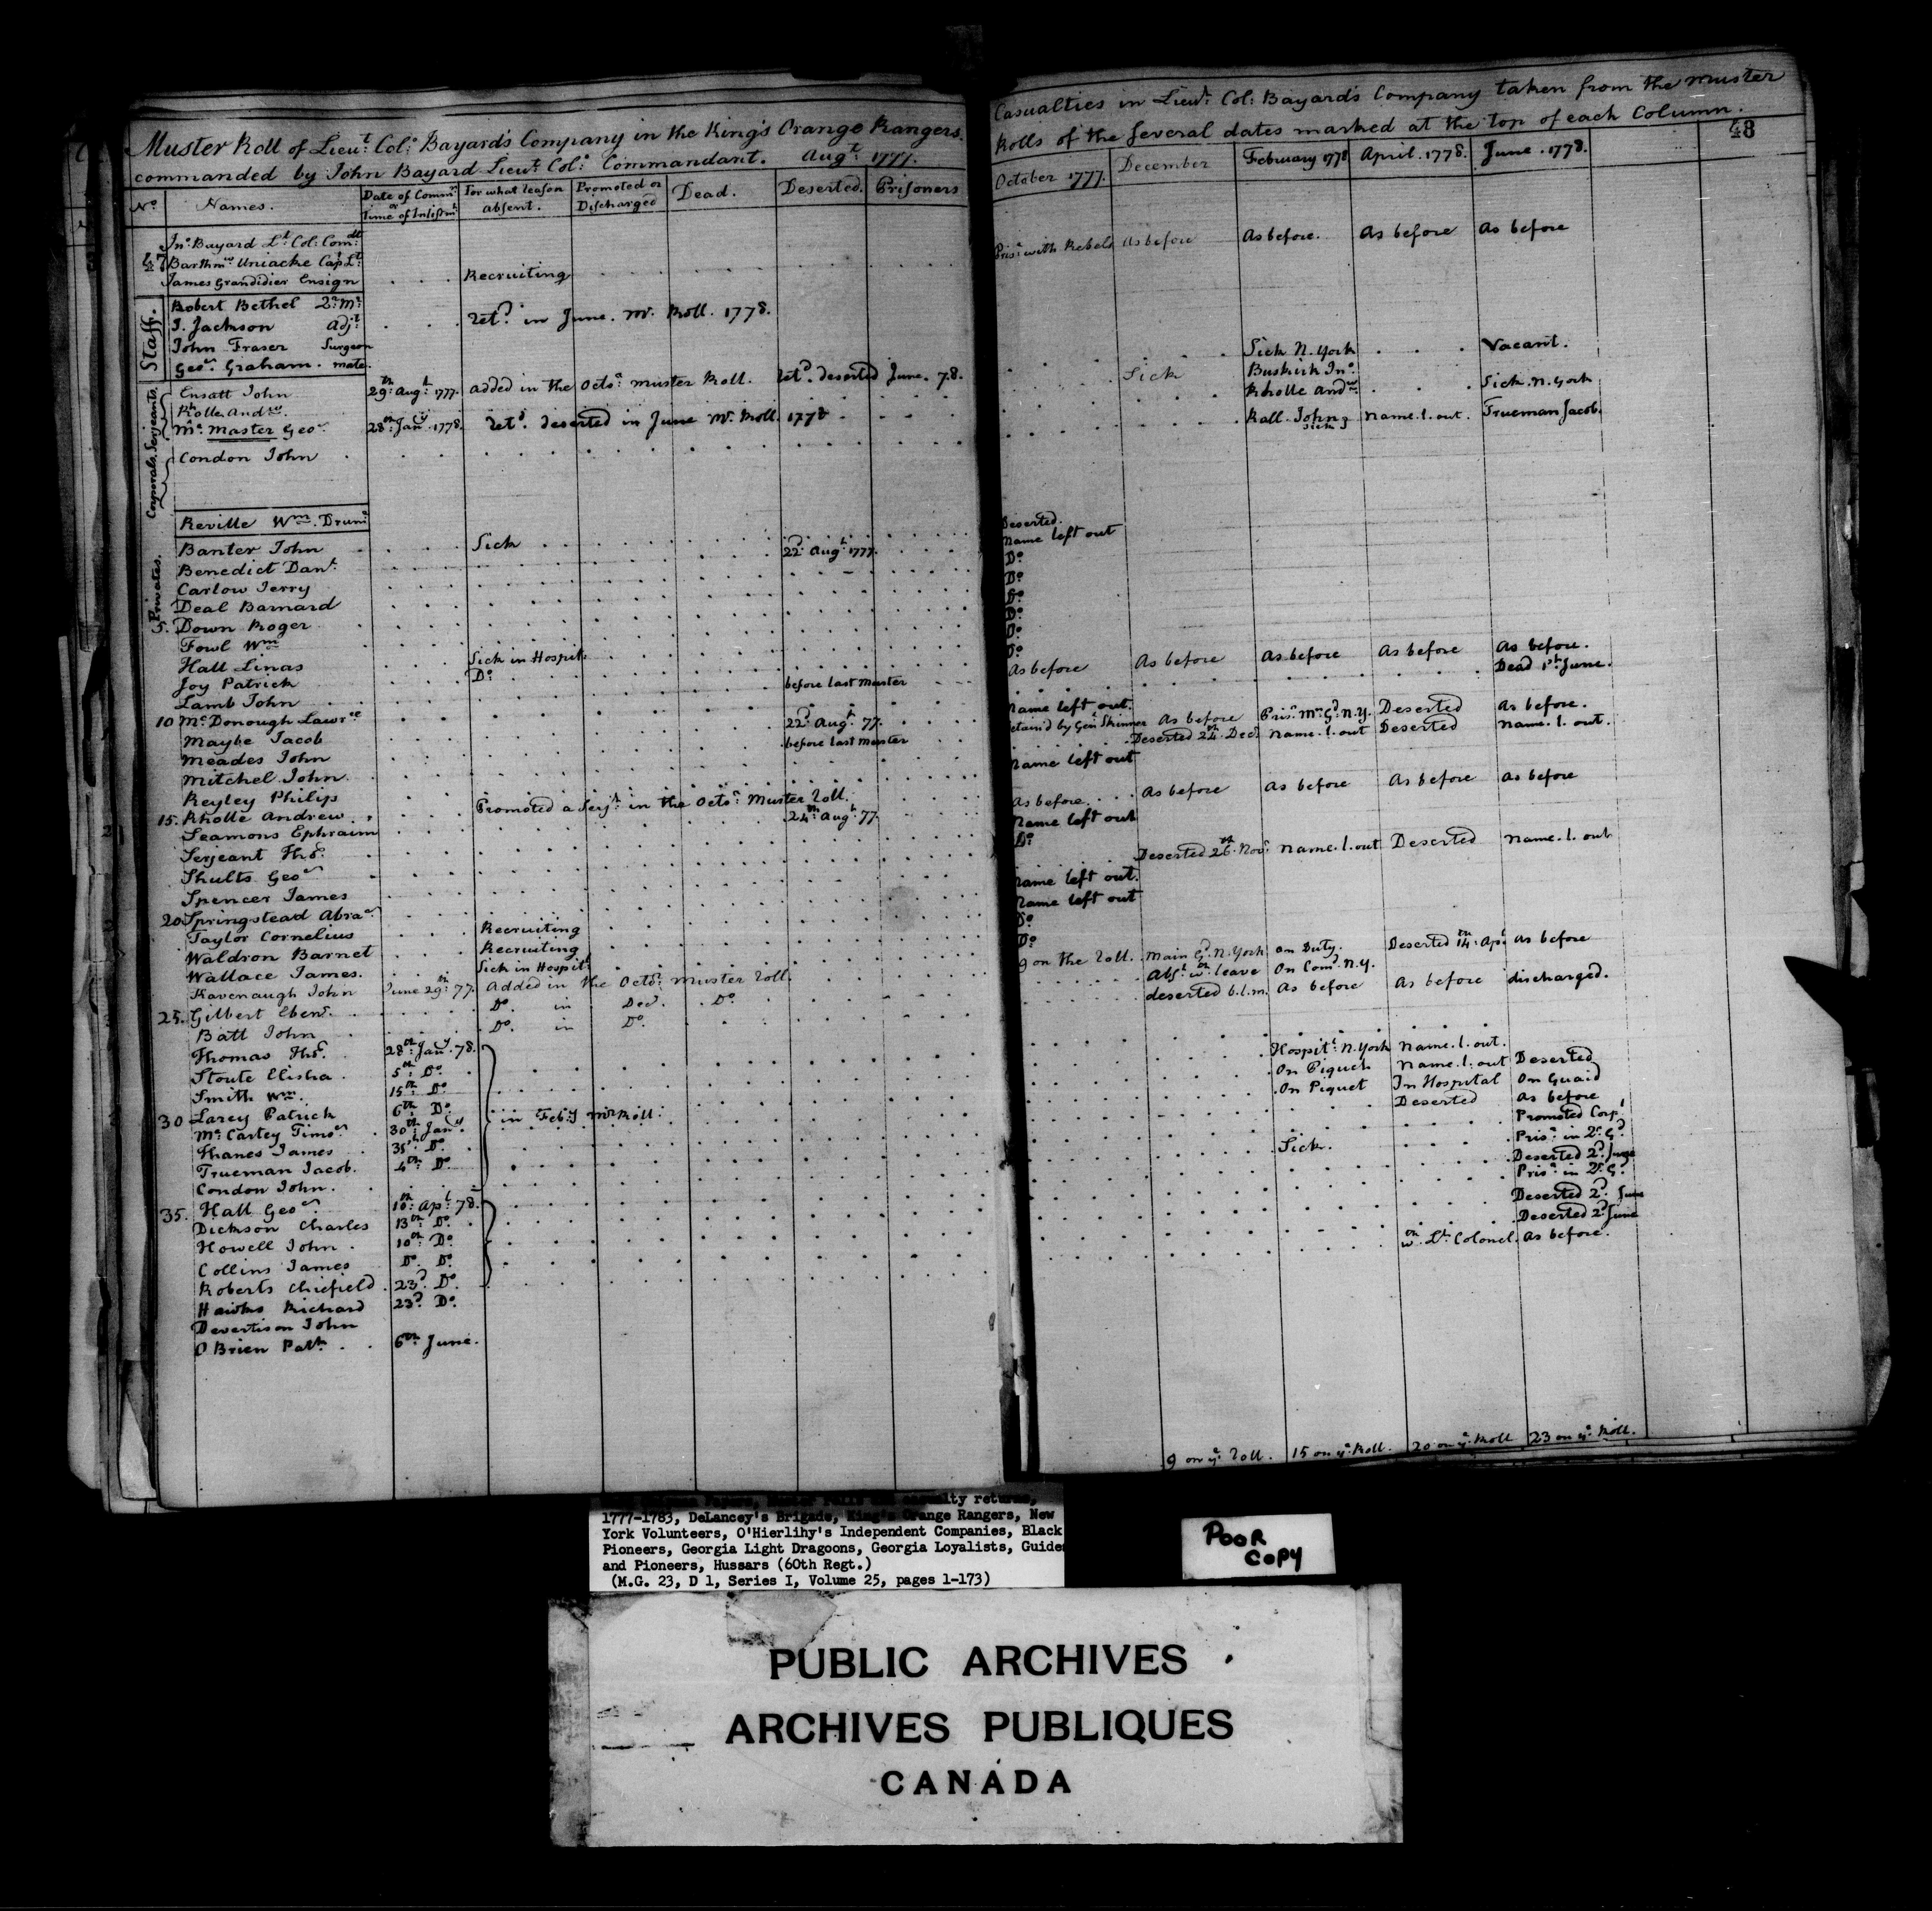 Muster Roll of Lieut. Col. Bayard's Company in the King's Orange Rangers.
commanded by John Bayard Lieut. Col. Commandant. Augt. 1777.
No. Names. Date of Commn. or Time of Inlistmt. For what reason absent. Promoted or Discharged Dead. Deserted. Prisoners
Jno. Bayard Lt. Col. Comdt.
Barthmw. Uniacke Capt. Lt.
James Grandidier Ensign . . . Recruiting
Staff.
Robert Bethel Qr. Mr.
J. Jackson Adjt. . . . Ret'd. in June. Mr. Roll. 1778.
John Fraser Surgeon
Geo. Graham. mate.
Corporals. Serjeants.
Ensatt John 29th. Augt. 1777. added in the Octor. muster Roll. Ret'd. deserted June. 78.
Rholle Andw.
Mc. Master Geo. 28th. Jany. 1778. Ret'd. deserted in June Mr. Roll. 1778
Condon John
Reville Wm. Drumr.
Privates.
Banter John Sick 22d. Augt. 1777.
Benedict Danl.
Carlow Jerry
Deal Barnard
5. Down Roger
Fowl Wm.
Hall Linas Sick in Hospitl.
Joy Patrick Do.
Lamb John before last muster
10 Mc. Donough Lawrce.
Maybe Jacob 22d. Augt. 77.
Meades John before last muster
Mitchel John
Reyley Philip
15. Rholle Andrew Promoted a Serjt. in the Octor. Muster Roll.
Seamons Ephraim 24th. Augt. 77.
Serjeant Thos.
Shults Geo.
Spencer James
20 Springstead Abram.
Taylor Cornelius Recruiting
Waldron Barnet Recruiting
Wallace James. Sick in Hospitl.
Kavenaugh John June 29th. 77. Added in the Octor. muster Roll.
25. Gilbert Ebenr. Do. in Decr. Do.
Batt John Do. in Do.
Thomas Thos. 28th. Jany. 78.
Stoute Elisha 5th. Do.
Smith Wm. 15th. Do.
30 Larey Patrick 6th. Do. in Feby. Mr. Roll.
Mc. Cartey Timo. 30th. Jany.
Thanes James 31st. Do.
Trueman Jacob. 4th. Do.
Condon John.
35. Hall Geo. 10th. Apl. 78.
Dickson Charles 13th. Do.
Howell John 10th. Do.
Collins James Do. Do.
Roberts Chiefield 23d. Do.
Hawks Richard 23d. Do.
Devertison John
O Brien Patk. 6th. June.
Casualties in Lieut. Col. Bayard's Company taken from the muster
Rolls of the several dates marked at the top of each Column.
48
October 1777. December February 1778 April. 1778. June. 1778.
Prisr. with Rebels As before As before. As before As before
Sick N. York Vacant.
Sick Buskirk Jno.
Rholle Andw. Sick. N. York
Rall. John sick Name. l. out. Trueman Jacob.
Deserted.
Name left out
Do.
Do.
Do.
Do.
Do.
Do.
As before As before As before As before As before.
Dead 1st. June.
Name left out.
Detain'd by Genl. Skinner As before Prisr. Mn. Gd. N. Y. Deserted As before.
Deserted 24th. Decr. Name. l. out Deserted Name. l. out.
Name left out
As before. As before As before As before As before
Name left out
Do.
Deserted 26th. Novr. Name. l. out Deserted Name. l. out
Name left out.
Name left out
Do.
Do.
9 on the Roll. Main Gd. N. York on Duty. Deserted 14th. Apl. As before
Abst. wth. leave On Comd. N. Y.
deserted b. l. m. As before As before discharged.
Hospitl. N. York Name. l. out.
On Piquet Name. l. out Deserted
On Piquet In Hospital On Guard
Deserted As before
Promoted Corpl.
Sick. Prisr. in Qr. Gd.
Deserted 2d. June
Prisr. in Qr. Gd.
Deserted 2d. June
Deserted 2d. June
wth. Lt. Colonel. As before.
9 on ye. Roll. 15 on ye. Roll. 20 on ye. Roll 23 on ye. Roll.
1777-1783, DeLancey's Brigade, King's Orange Rangers, New
York Volunteers, O'Hierlihy's Independent Companies, Black
Pioneers, Georgia Light Dragoons, Georgia Loyalists, Guides
and Pioneers, Hussars (60th Regt.)
(M.G. 23, D 1, Series I, Volume 25, pages 1-173)
POOR
COPY
PUBLIC ARCHIVES
ARCHIVES PUBLIQUES
CANADA